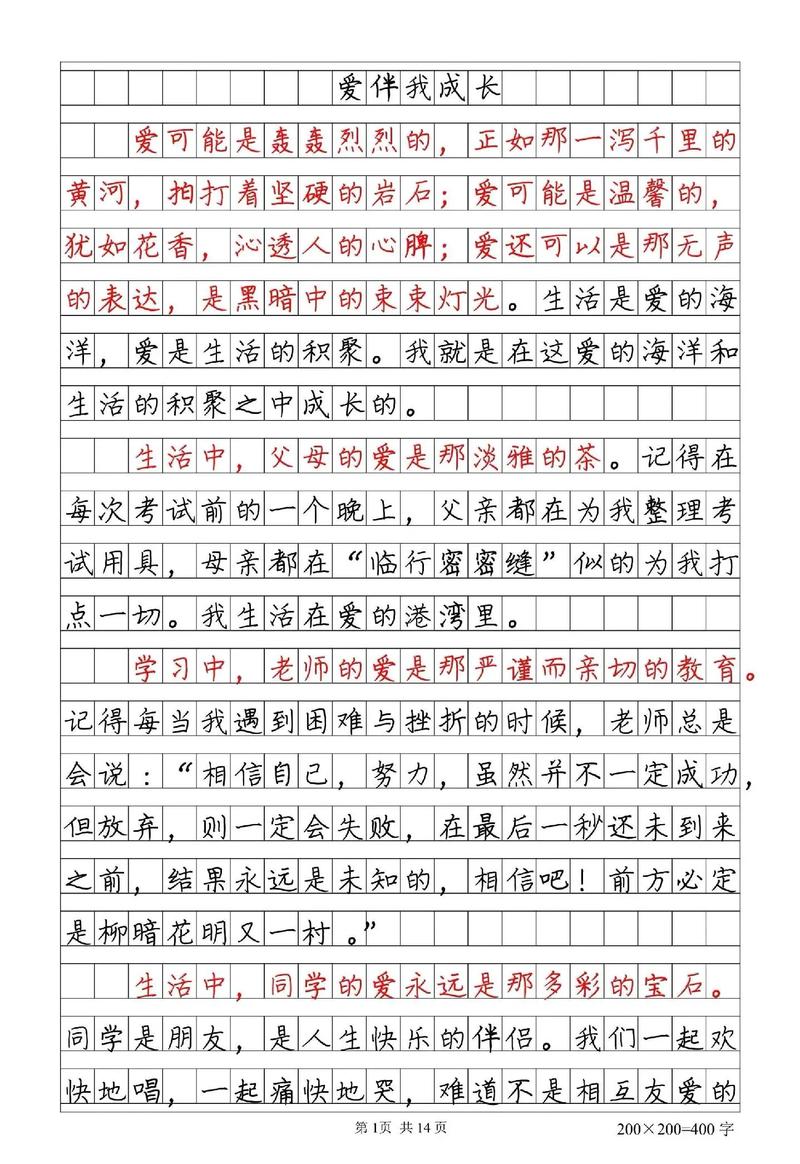 爱伴我成长
爱可能是轰轰烈烈的，正如那一泻千里的
黄河，拍打着坚硬的岩石；爱可能是温馨的，
犹如花香，沁透人的心脾；爱还可以是那无声
的表达，是黑暗中的束束灯光。生活是爱的海
洋，爱是生活的积聚。我就是在这爱的海洋和
生活的积聚之中成长的。
生活中，父母的爱是那淡雅的茶。记得在
每次考试前的一个晚上，父亲都在为我整理考
试用具，母亲都在“临行密密缝”似的为我打
点一切。我生活在爱的港湾里。
学习中，老师的爱是那严谨而亲切的教育。
记得每当我遇到困难与挫折的时候，老师总是
会说：“相信自己，努力，虽然并不一定成功，
但放弃，则一定会失败，在最后一秒还未到来
之前，结果永远是未知的，相信吧！前方必定
是柳暗花明又一村。”
生活中，同学的爱永远是那多彩的宝石。
同学是朋友，是人生快乐的伴侣。我们一起欢
快地唱，一起痛快地哭，难道不是相互友爱的
第1页 共14页
200×200=400 字